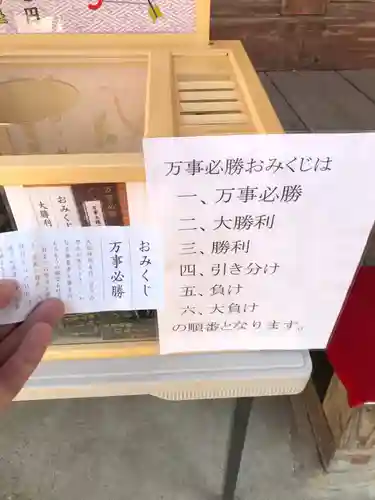 円
おみくじ
大勝利
おみくじ
万事必勝
万事必勝おみくじは
一、万事必勝
二、大勝利
三、勝利
四、引き分け
五、負け
六、大負け
の順番となります。